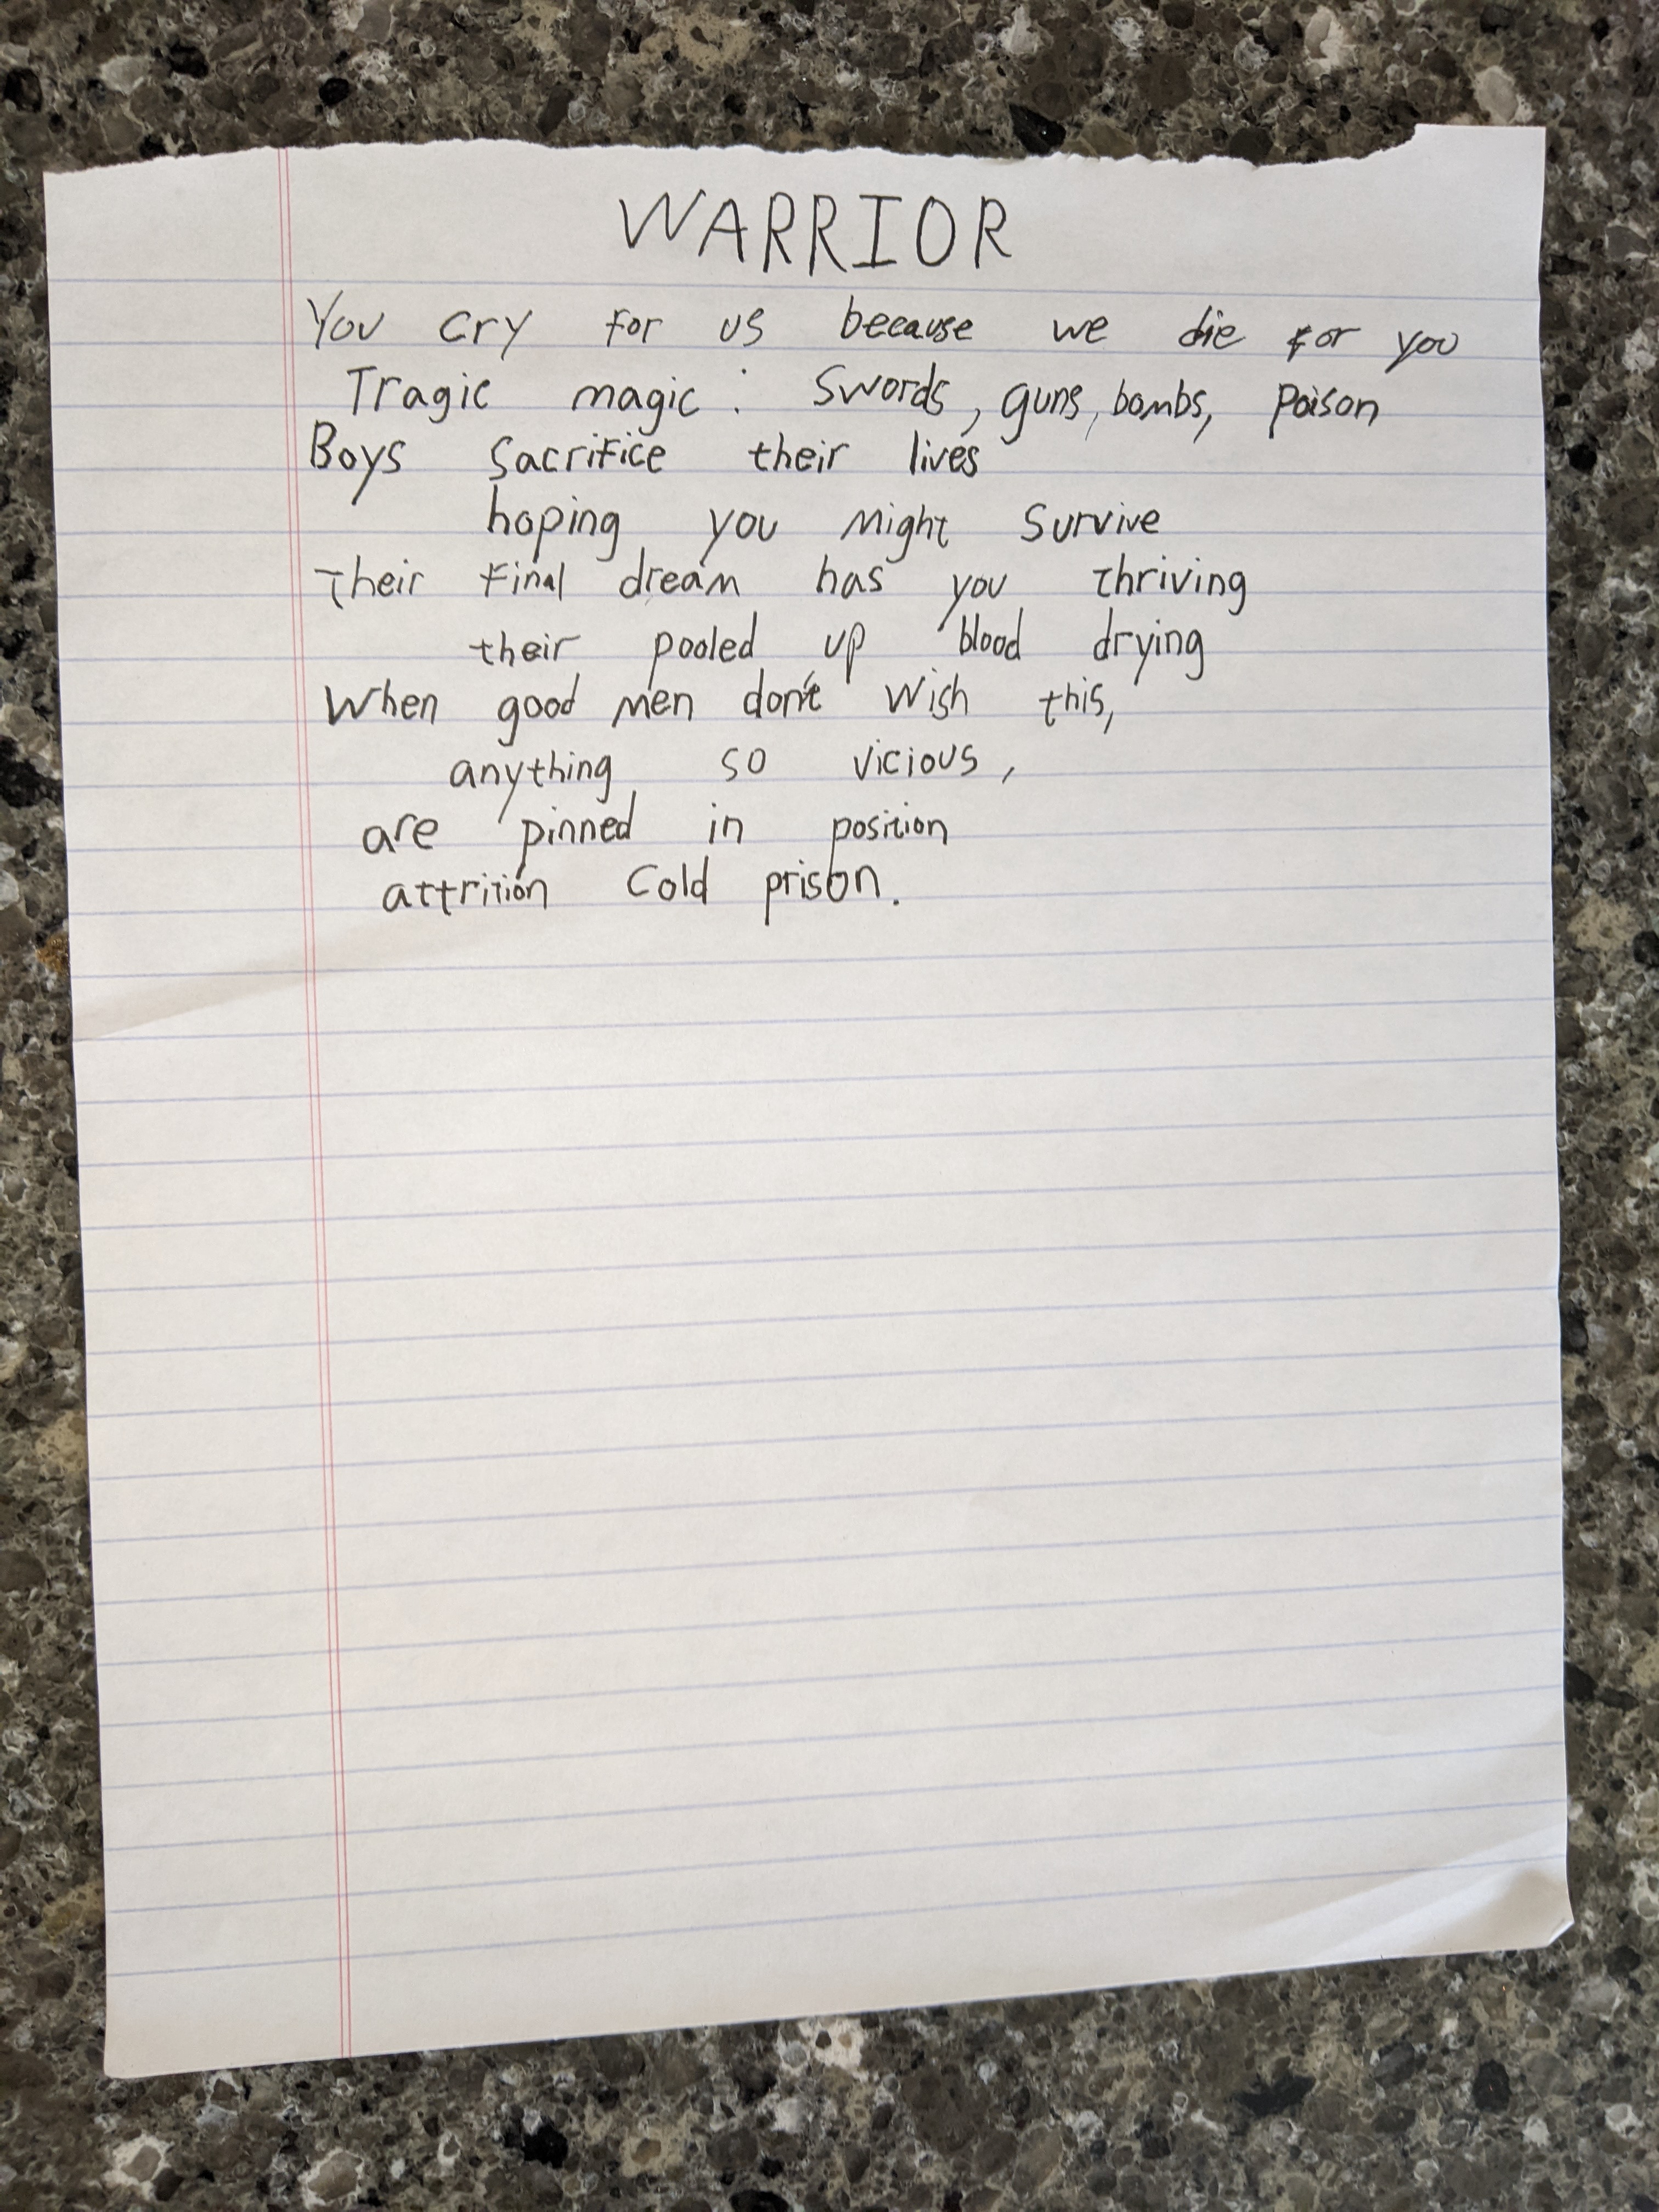 WARRIOR
You cry for us because we die for you
Tragic magic: Swords, guns, bombs, poison
Boys sacrifice their lives
hoping you might survive
Their final dream has you thriving
their pooled up blood drying
When good men don't wish this,
anything so vicious,
are pinned in position
attrition cold prison.